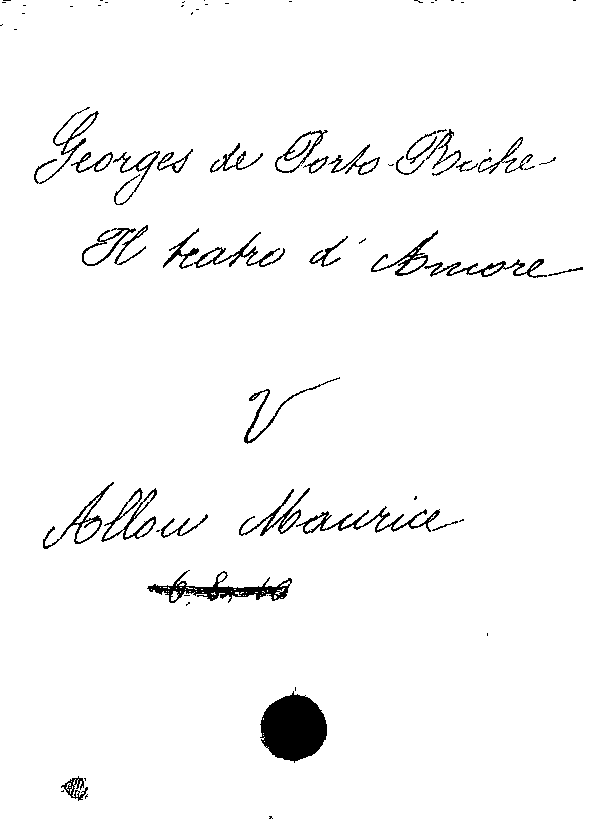 Georges de Porto-Riche
Il teatro d'Amore
V
Allou Maurice
6.8.10